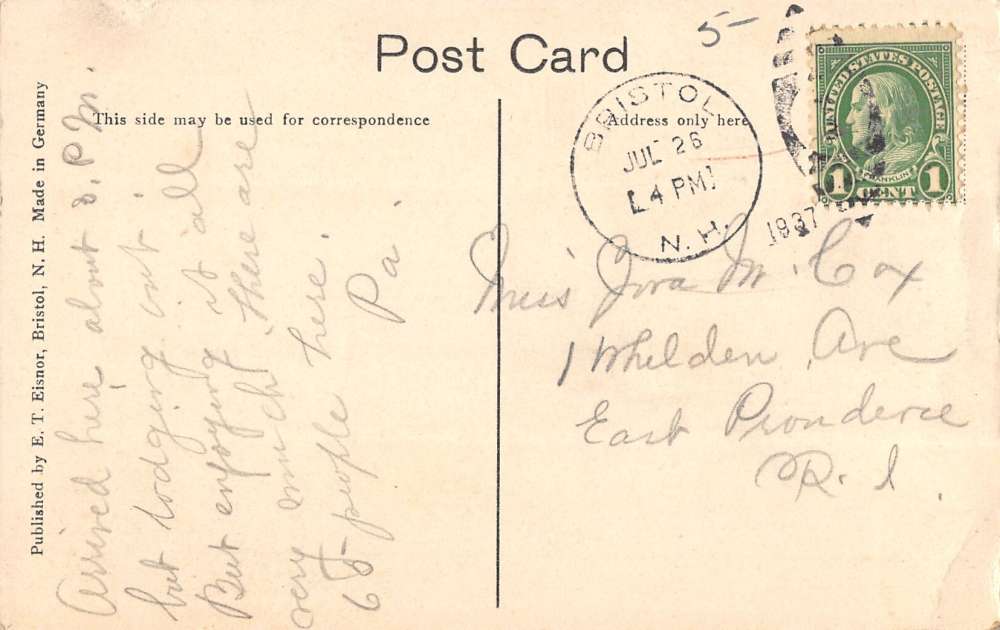 5-
Post Card
This side may be used for correspondence
Address only here
BRISTOL
JUL 26
4 PM
N.H.
1937
UNITED STATES POSTAGE
FRANKLIN
1 CENT 1
Published by E. T. Eisnor, Bristol, N. H. Made in Germany
Arrived here about 8. P M.
but lodging out.
But enjoying it all
very much. There are
65 people here.
Pa.
Miss M. Cox
1 Whelden Ave
East Providence
R. I.